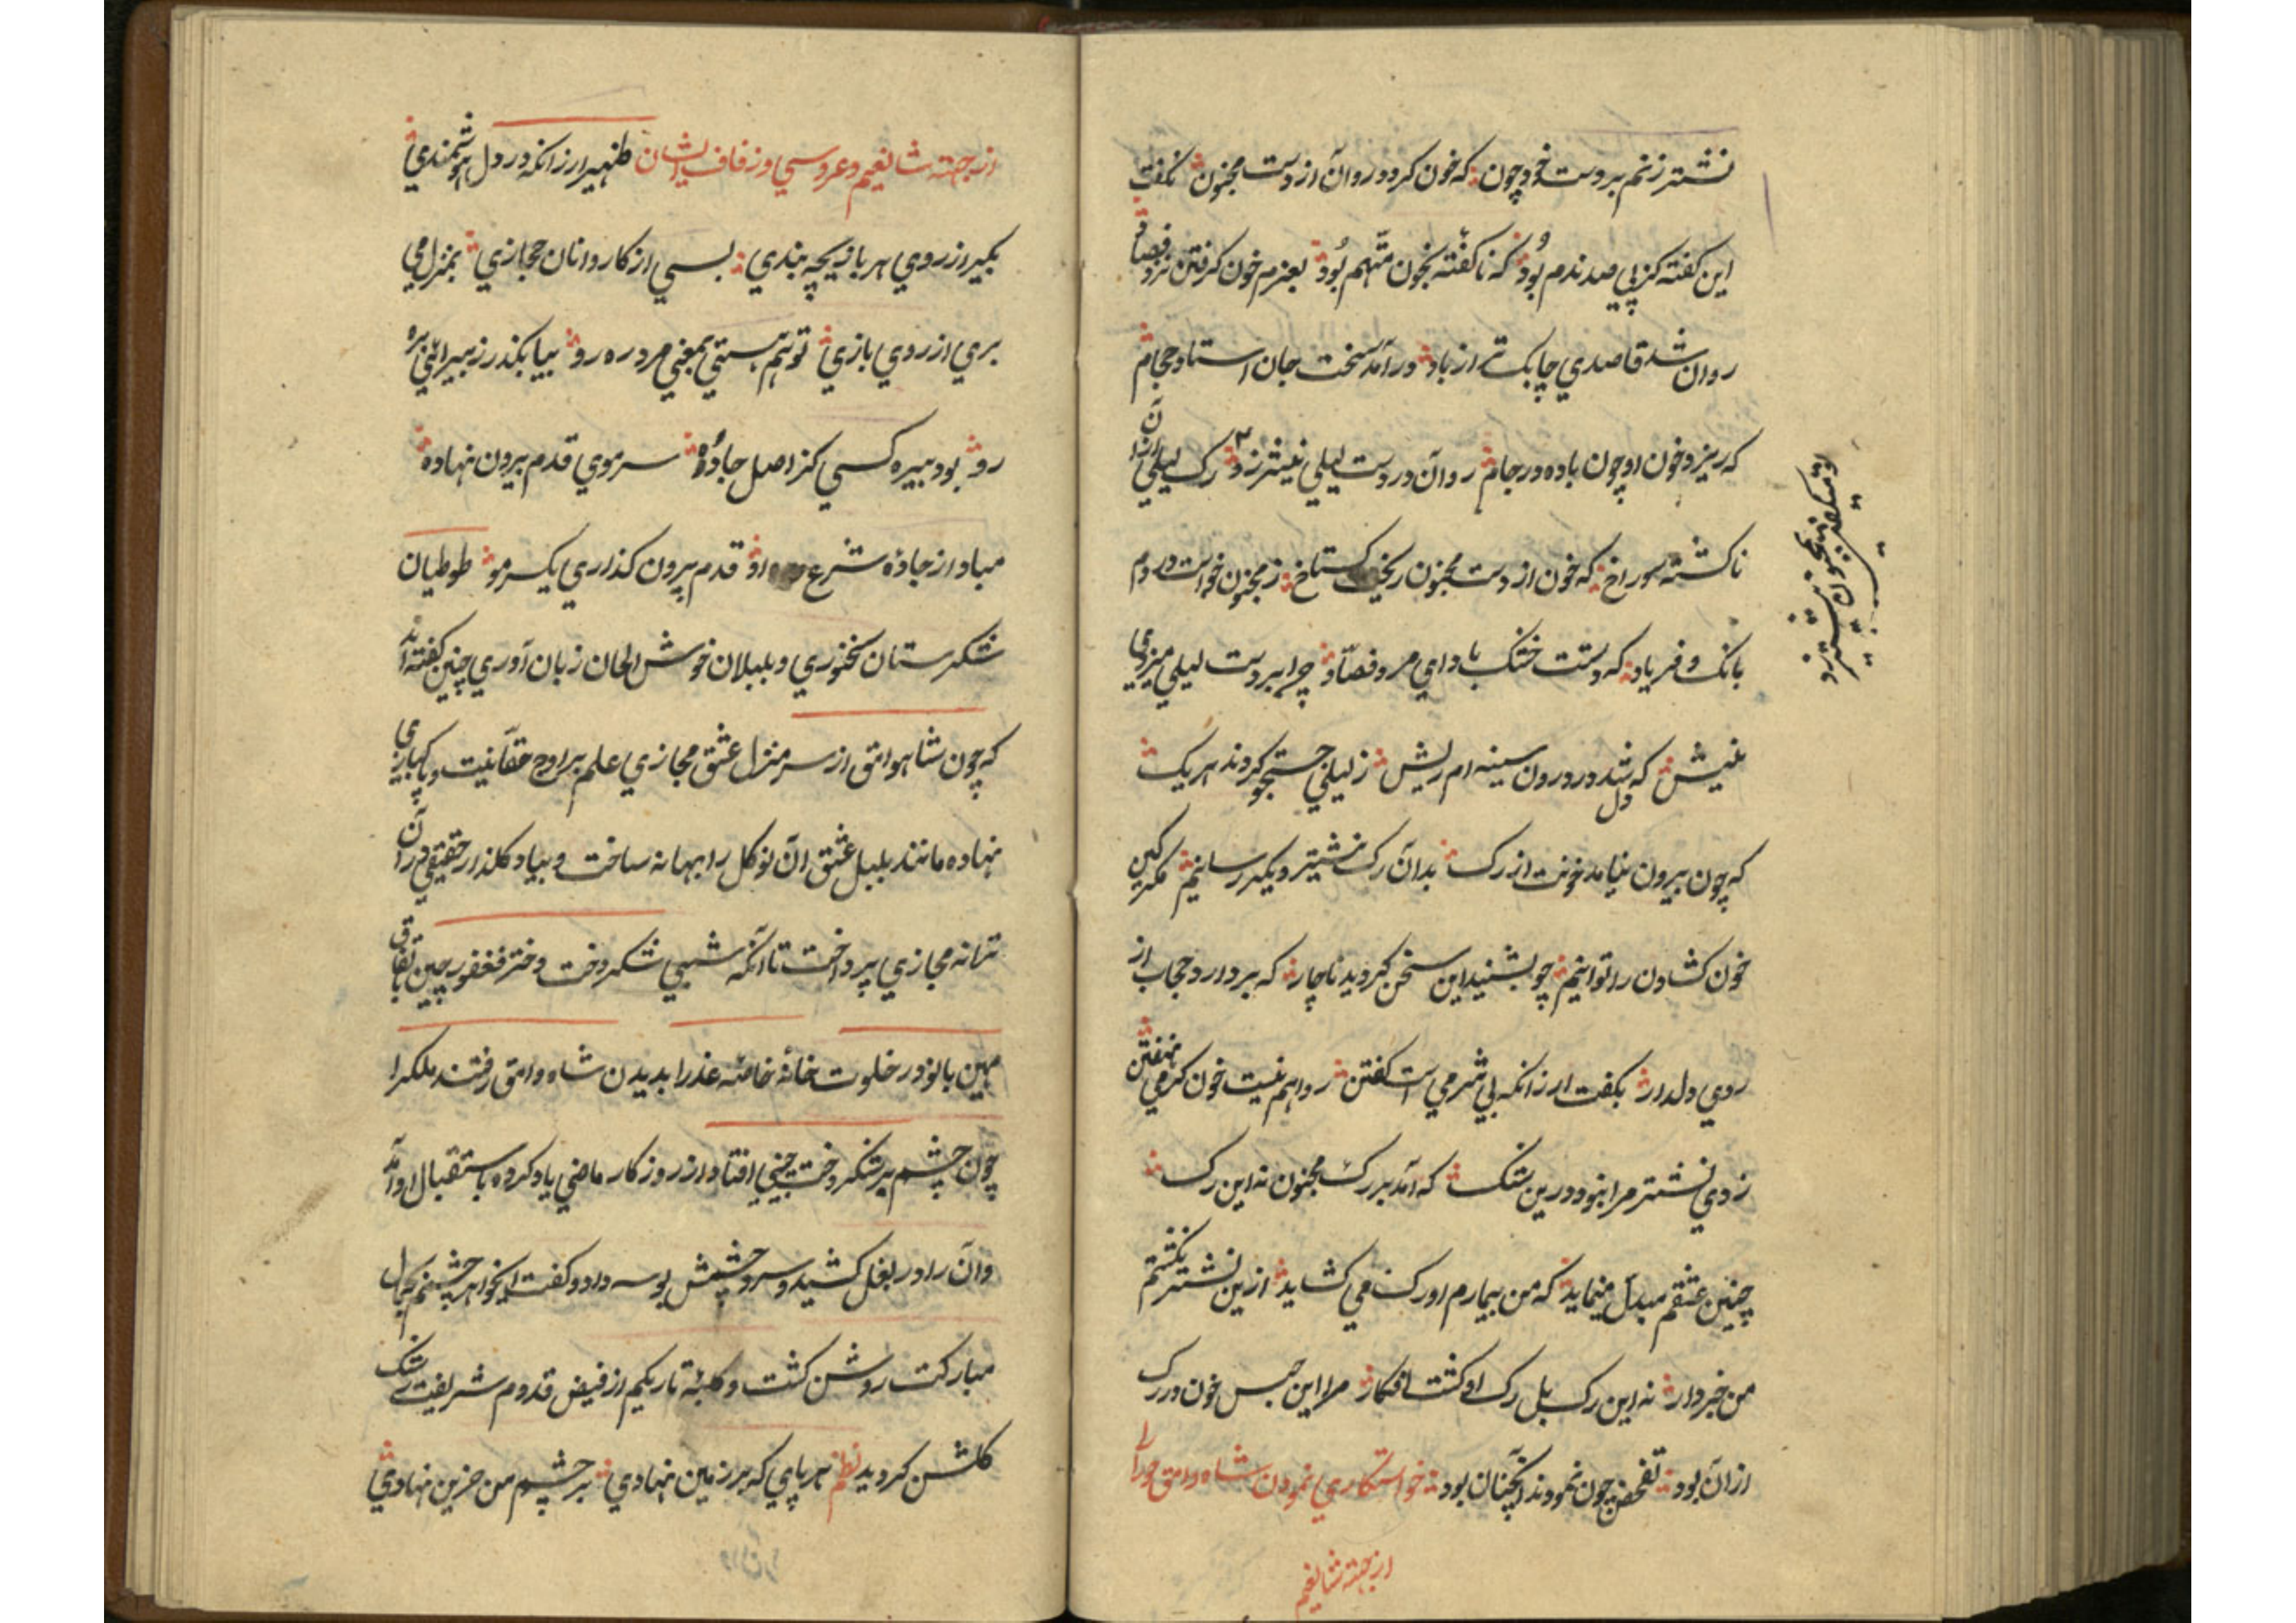 نشتر زنم بر دست خود چون که خون کردد روان از دست مجنون نکفت
این کفته کز پی صد ندم بود که ناکفته بخون متهم بود بعزم خون کرفتن نزد فصاد
روان شد قاصدی چابک تر از باد در آمد سخت جان استاد حجام
که ریزد خون او چون باده در جام روان در دست لیلی نیشتر زد رک لیلی از آن
ناکشته سوراخ که خون از دست مجنون ریخت کستاخ ز مجنون خواست در دم
بانک و فریاد که دستت خشک باد ای مرد فصاد چرا بر دست لیلی میزنی
نیش که شد در درون سینه ام دل ریش ز لیلی جستجو کردند هر یک
که چون بیرون نیامد خونت از رک بدان رک نشتر دیکر رسانیم مکر کین
خون کشادن را توانیم چو بشنید این سخن کردید ناچار که بردارد حجاب از
روی دلدار بکفت ار زانکه بی شرمی است کفتن روا هم نیست خون کرمی نهفتن
زدی نشتر مرا نبود درین شک که آمد بر رک مجنون نه این رک
چنین عشقم مبدل مینماید که من بیمارم او رک می کشاید ازین نشتر نکشتم
من خبردار نه این رک بل رک او کشت افکار مرا این حبس خون در رک
از آن بود تفحص چون نمودند آنچنان بود خواستکاری نمودن شاه وامق حورا را
از جهته شانعیم
او میکفت بمجنون نشتر زد
از جهته شانعیم و عروسی و زفاف ایشان ظهیر ار زانکه در دل هوشمندی
بکیر از روی هر بازیچه پندی بسی از کاروانان حجازی بمنزل می
بری از روی بازی تو هم هستی بمعنی مرد ره رو بیا بکذر ز بیراهی بره
رو بود بیره کسی کز اصل جاده سر موی قدم بیرون نهاده
مباد از جاده شرع او قدم بیرون کذاری یکسر مو طوطیان
شکرستان سخنوری و بلبلان خوش الحان زبان آوری چنین کفته اند
که چون شاه وامق از سر منزل عشق مجازی علم بر اوج حقانیت و پاکبازی
نهاده مانند بلبل عشق آن نوکل را بهانه ساخت و بیاد کلذار حقیقی در آن
ترانه مجازی پرداخت تا آنکه شبی شکر دخت دختر فغفور چین باتفاق
مهین بانو در خلوت خانۀ خاصه عذرا بدیدن شاه وامق رفتند ملک را
چون چشم بر شکر دخت چینی افتاد از روزکار ماضی یاد کرده باستقبال او آمد
و آن را در بغل کشید و سر و چشمش بوسه داد و کفت ایخواهر چشمم بجمال
مبارکت روشن کشت و کلبه تاریکم از فیض قدوم شریفت رشک
کلشن کردید نظم هر پایی که بر زمین نهادی بر چشم من حزین نهادی